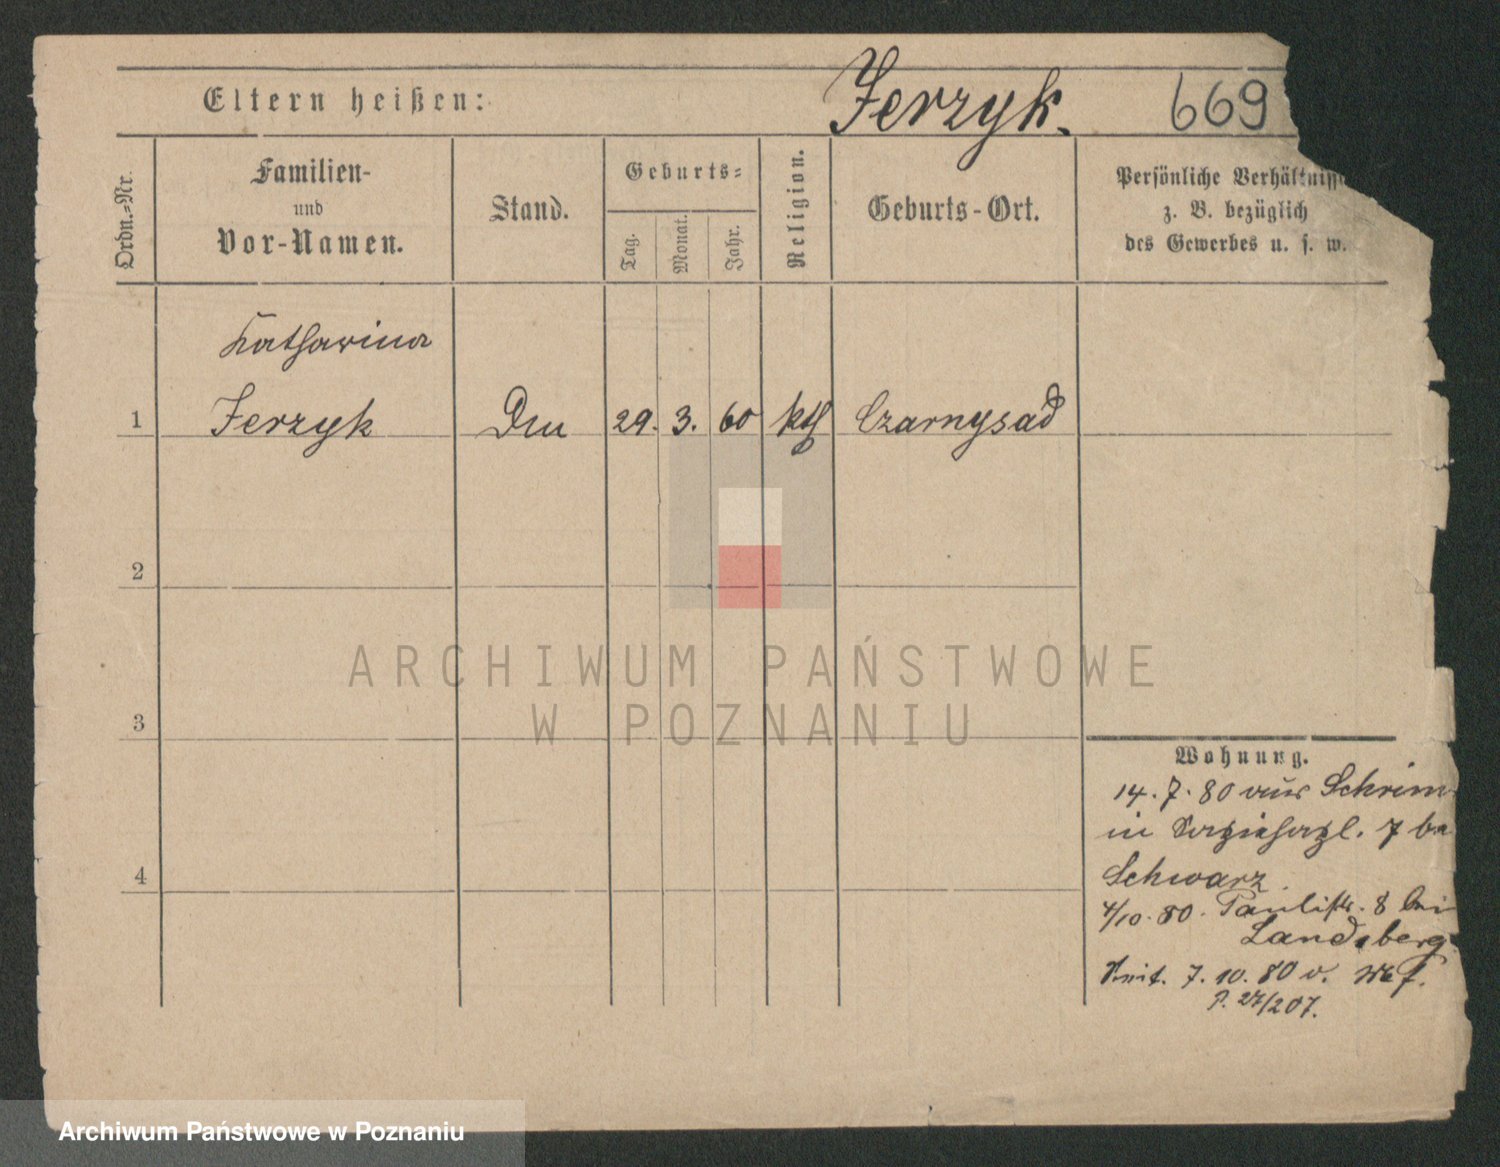 Eltern heißen:
Jerzyk.
669
Ordn.-Nr.
Familien-
und
Vor-Namen.
Stand.
Geburts-
Tag.
Monat.
Jahr.
Religion.
Geburts-Ort.
Persönliche Verhältniss
z. B. bezüglich
des Gewerbes u. s. w.
Katharina
1 Jerzyk 29. 3. 60 kth Czarnysad
2
3
4
Wohnung.
14. 7. 80 aus Schrim
in 7 bei
Schwarz
4/10. 80. Paulistr. 8 bei
Landsberg
7. 10. 80 v.
P. 27/207.
ARCHIWUM PAŃSTWOWE
W POZNANIU
Archiwum Państwowe w Poznaniu